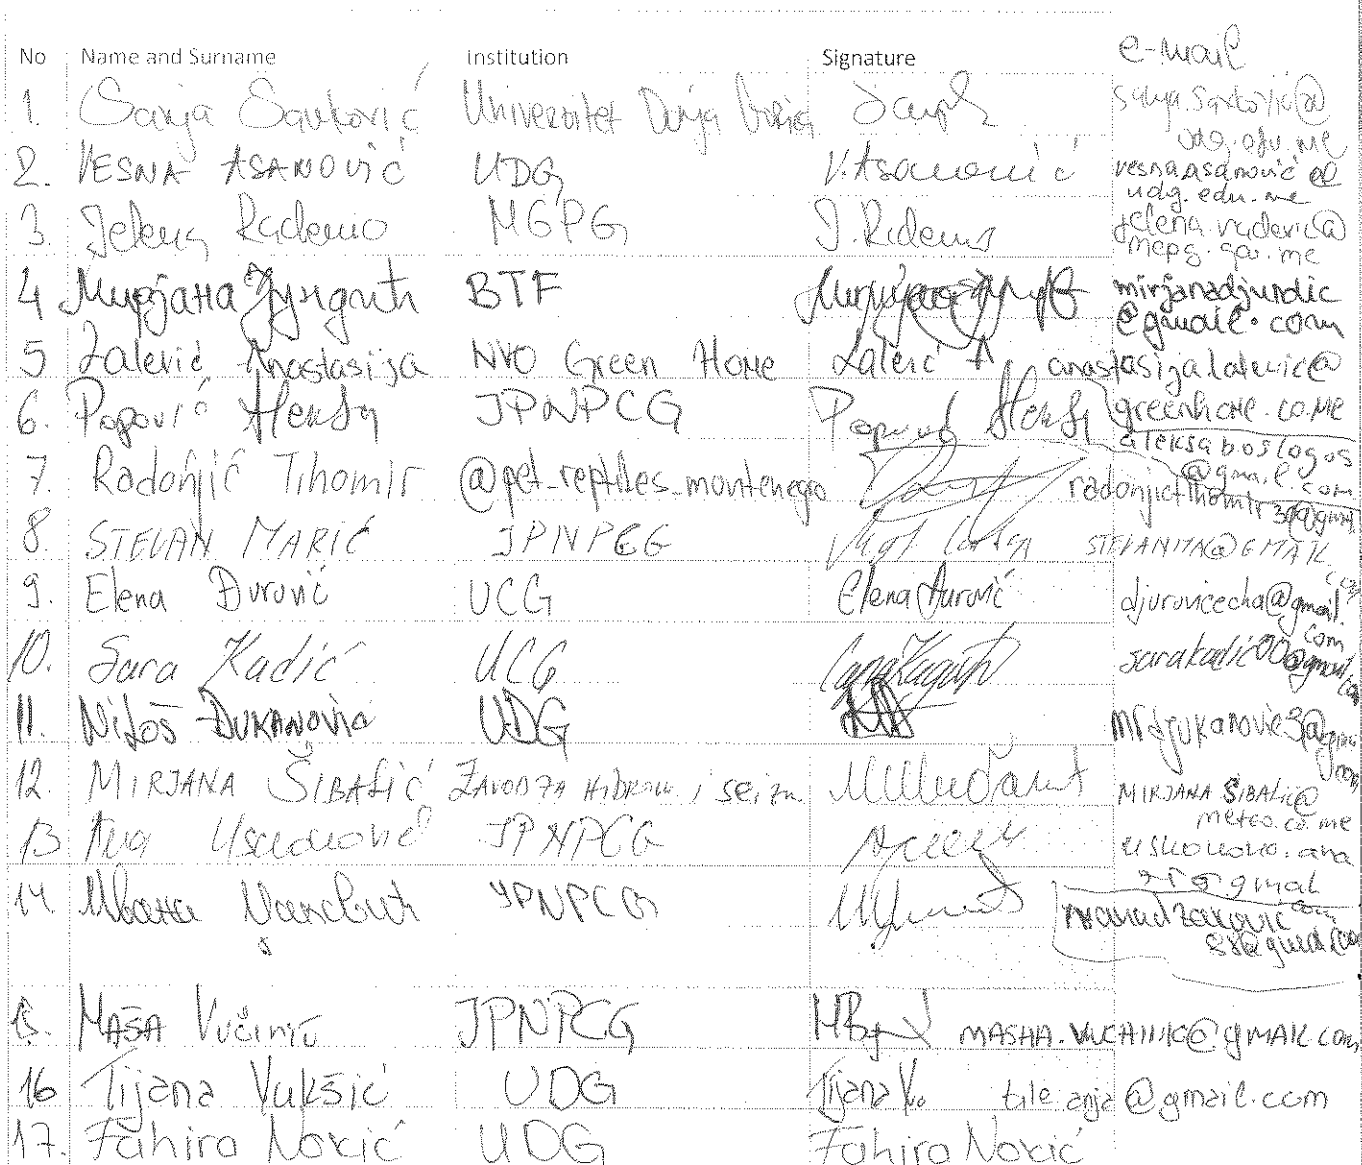 No Name and Surname Institution Signature e-mail
1. Sanja Savković Univerzitet Donja Gorica
2. VESNA ASANOVIĆ UDG V. Asanović vesna.asanović@
udg.edu.me
3. Jelena Radević MEPG J. Radević jelena.radevic@
mepg.gov.me
4 Мирјана Ђундић BTF mirjanadjundic
@gmail.com
5 Lalević Anastasija NVO Green Home Lalević A anastasijalalevic@
greenhome.co.me
6. Popović Aleksa JPNPCG Popović Aleksa aleksaboslogos
@gmail.com
7. Radonjić Tihomir @pet_reptiles_montenegro radonjictihomir30@gmail
8. STEVAN MARIĆ JPNPCG STEVANITM@GMAIL
.com
9. Elena Đurović UCG Elena Đurović djurovicecha@gmail.
com
10. Sara Kadić UCG Сара Кадић sarakadic00@gmail
.com
11. Miloš ĐUKANOVIĆ UDG mrdjukanovic3@gmail
.com
12. MIRJANA ŠIBALIĆ ZAVOD ZA HIDROM. i SEIZM. MIRJANA.ŠIBALIĆ@
meteo.co.me
13 Ana Usković JPNPCG
14. Ивана JPNPCG ivanadzakovic
88@gmail.com
15. MAŠA Vučinić JPNPCG MASHA.VUCHINIC@GMAIL.com
16 Tijana Vukšić UDG Tijana V. tileanja@gmail.com
17. Fahira Nokić UDG Fahira Nokić